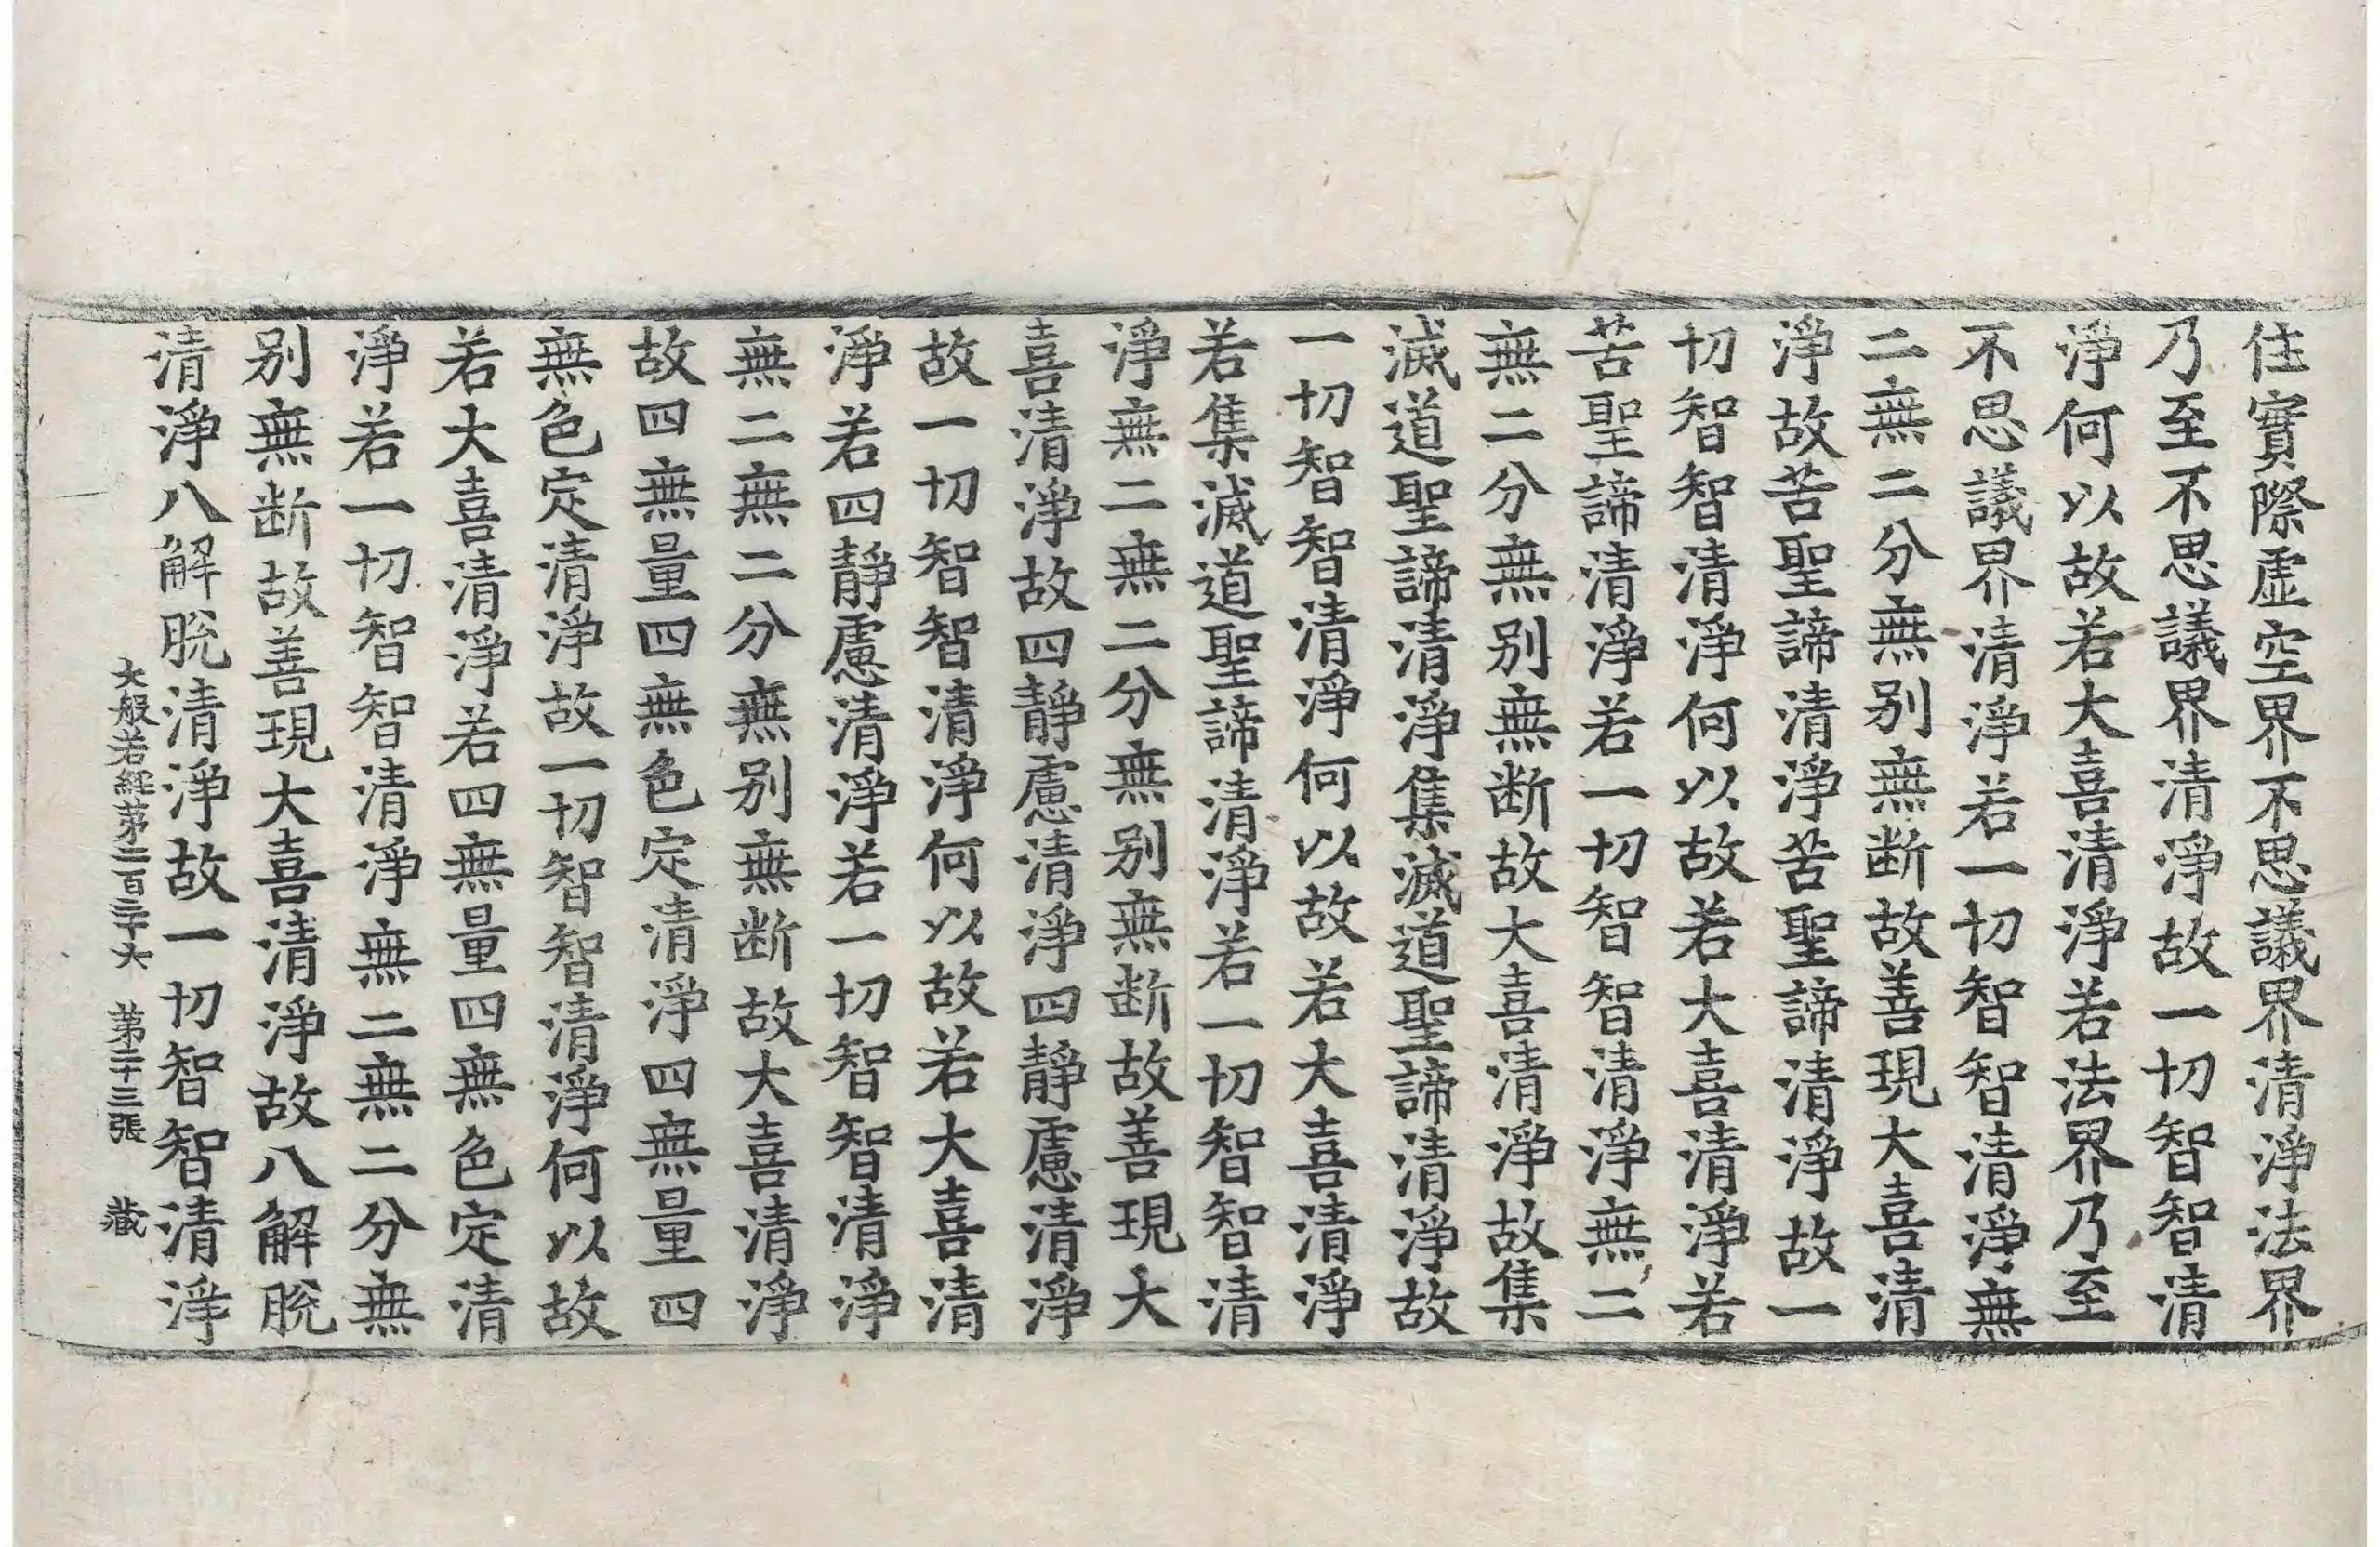 住實際虛空界不思議界清淨法界
乃至不思議界清淨故一切智智清
淨何以故若大喜清淨若法界乃至
不思議界清淨若一切智智清淨無
二無二分無别無断故善現大喜清
淨故苦聖諦清淨苦聖諦清淨故一
切智智清淨何以故若大喜清淨若
苦聖諦清淨若一切智智清淨無二
無二分無别無断故大喜清淨故集
滅道聖諦清淨集滅道聖諦清淨故
一切智智清淨何以故若大喜清淨
若集滅道聖諦清淨若一切智智清
淨無二無二分無别無断故善現大
喜清淨故四靜慮清淨四靜慮清淨
故一切智智清淨何以故若大喜清
淨若四靜慮清淨若一切智智清淨
無二無二分無别無断故大喜清淨
故四無量四無色定清淨四無量四
無色定清淨故一切智智清淨何以故
若大喜清淨若四無量四無色定清
淨若一切智智清淨無二無二分無
别無断故善現大喜清淨故八解脫
清淨八解脫清淨故一切智智清淨
大般若経第二百三十六 第二十三張 藏